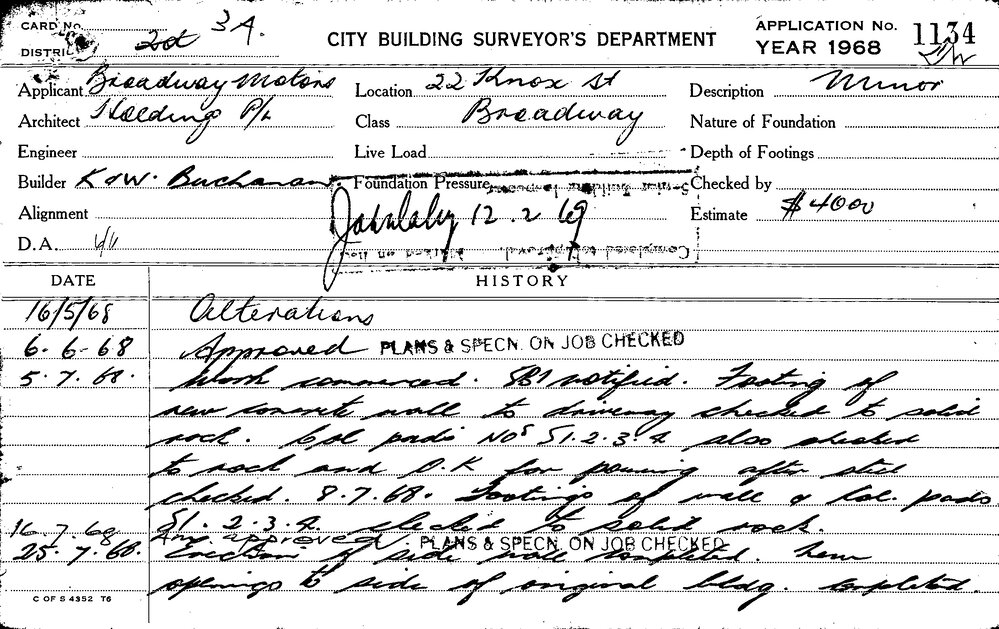 CARD No. 3A.
DISTRICT 2d
CITY BUILDING SURVEYOR'S DEPARTMENT
APPLICATION No. 1134
YEAR 1968
Applicant Broadway Motors
Location 22 Knox St
Description Minor
Architect Holdings P/L
Class Broadway
Nature of Foundation
Engineer
Live Load
Depth of Footings
Builder K & W. Buchanan.
Foundation Pressure
Checked by
Alignment
12.2.69
Estimate $4000
D.A.
DATE
HISTORY
16/5/68 Alterations
6-6-68 Approved PLANS & SPECN. ON JOB CHECKED
5.7.68. Work commenced. SBI notified. Footing of
new concrete wall to driveway checked to solid
rock. Col pads Nos S1.2.3.4 also checked
to rock and O.K for pouring after steel
checked. 8.7.68. Footings of wall & Col. pads
S1.2.3.4. checked to solid rock.
16.7.68 approved. PLANS & SPECN. ON JOB CHECKED
25.7.68. Erection of side wall completed. New
openings to side of original bldg. completed.
C OF S 4352 T6